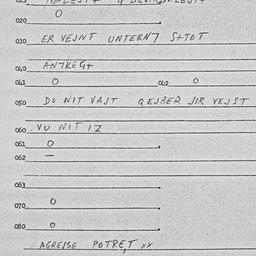 020 O
030 ER VEJNT UNTERN7 S+TOT
040 AN7KEG+
041 O 042 O
050 DO NIT VAJT QEJBER JIR VEJST
060 VU NIT IZ
061 O
062 —
063
070 O
080 O
AGREJSE POTRET xx